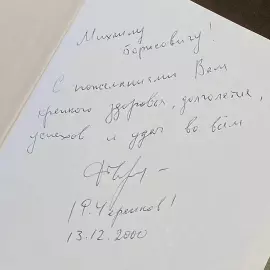 Михаилу
Борисовичу!
С пожеланиями Вам
крепкого здоровья, долголетия,
успехов и удач во всём
13.12.2000